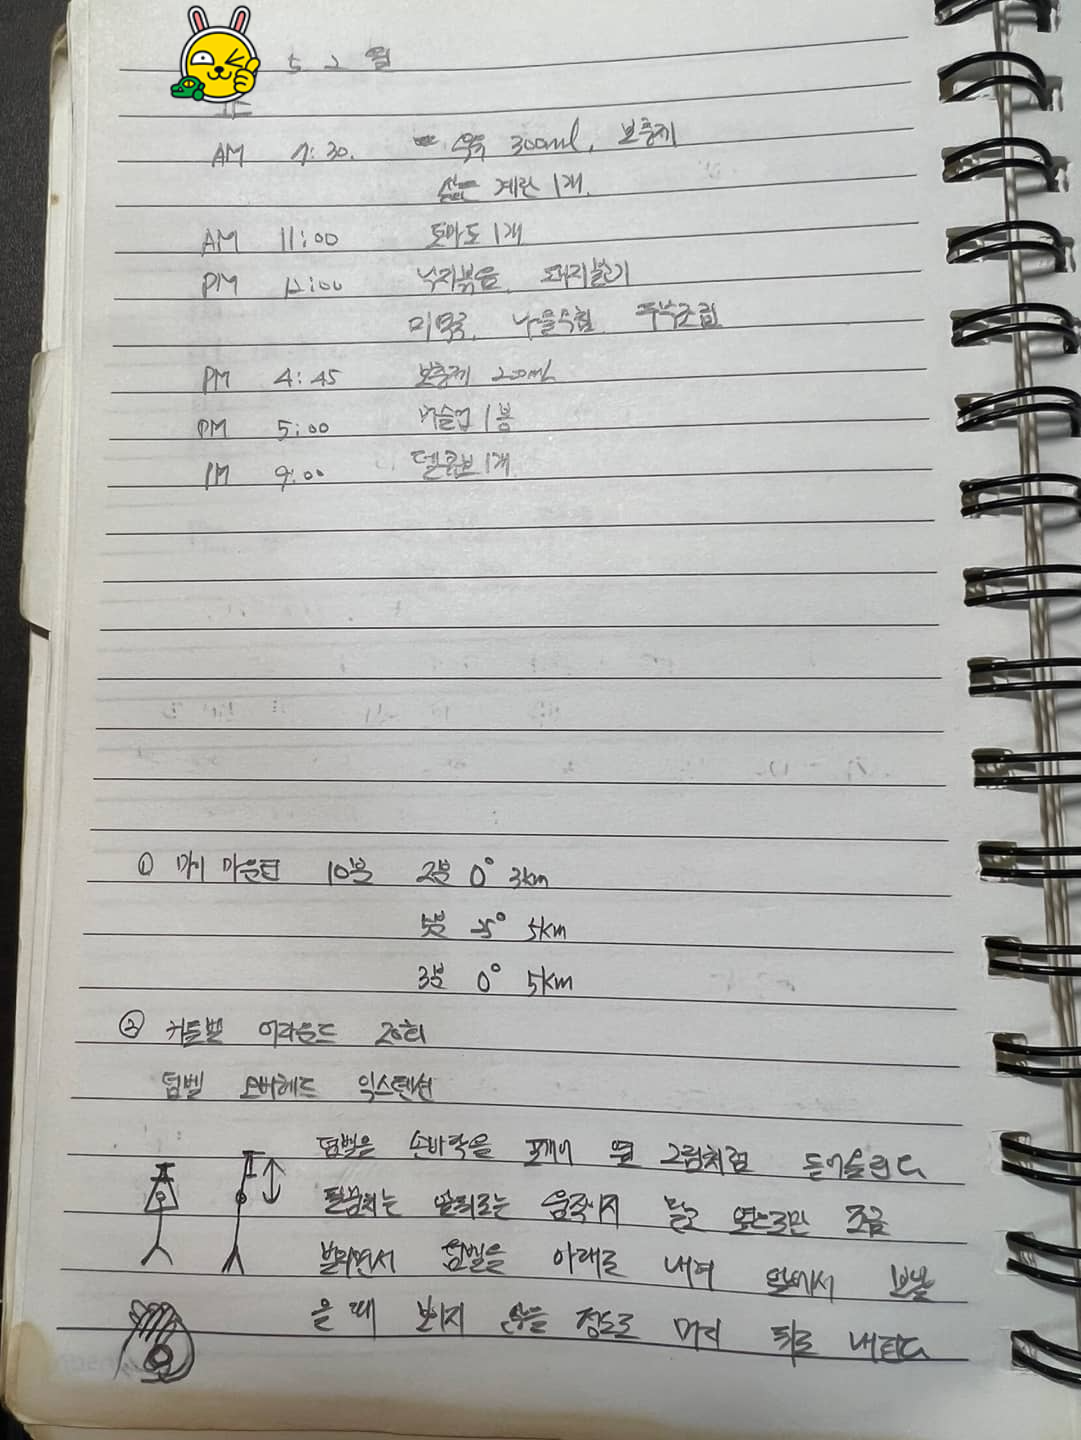 5 2 월
AM 7:30. 우유 300ml, 보충제
삶은 계란 1개.
AM 11:00 토마토 1개
PM 12:00 낙지볶음, 돼지불고기
미역국, 나물무침, 두부조림
PM 4:45 보충제 200ml
PM 5:00 머슬업 1봉
PM 9:00 델몬트 1개
① 마이 마운틴 10분 2분 0° 3km
5분 -5° 5km
3분 0° 5km
② 케틀벨 어라운드 20회
덤벨 오버헤드 익스텐션
덤벨은 손바닥을 포개어 옆 그림처럼 들어올린다
팔꿈치는 앞뒤로는 움직이지 말고 옆으로만 조금
벌리면서 덤벨을 아래로 내려 앞에서 보았
을 때 보이지 않을 정도로 머리 뒤로 내린다